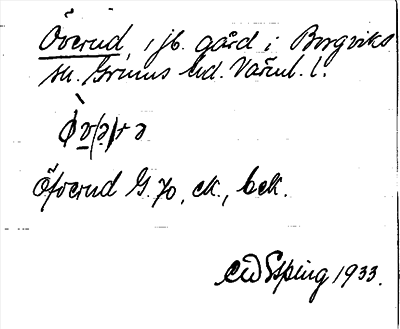 Överud, jb. gård i Borgviks
sn. Grums hd. Värml. l.
Öfverud G. 70, ek., bek.
Esping 1933.